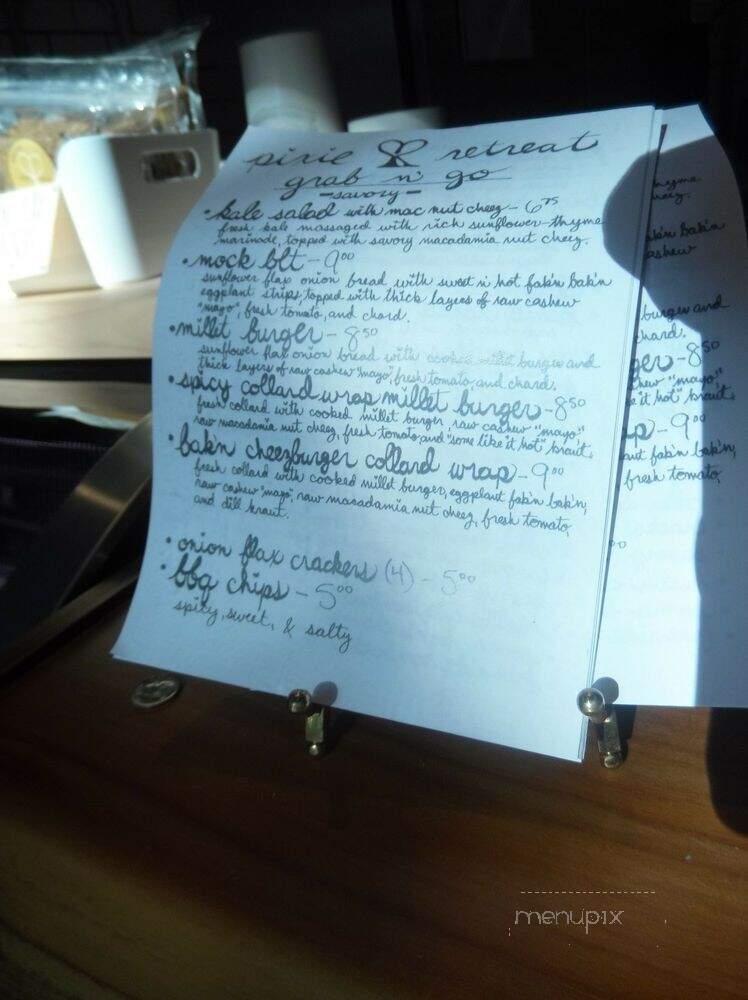 pixie retreat
grab n' go
-savory-
• kale salad with mac nut cheez - 6 75
fresh kale massaged with rich sunflower-thyme
marinade, topped with savory macadamia nut cheez.
• mock blt - 9 00
sunflower flax onion bread with sweet n' hot fak'n bak'n
eggplant strips, topped with thick layers of raw cashew
"mayo", fresh tomato, and chard.
• millet burger - 8 50
sunflower flax onion bread with cooked millet burger and
thick layers of raw cashew "mayo", fresh tomato, and chard.
• spicy collard wrap millet burger - 8 50
fresh collard with cooked millet burger, raw cashew "mayo",
raw macadamia nut cheez, fresh tomato, and "some like it hot" kraut.
• bak'n cheezburger collard wrap - 9 00
fresh collard with cooked millet burger, eggplant fak'n bak'n,
raw cashew "mayo", raw macadamia nut cheez, fresh tomato,
and dill kraut.
• onion flax crackers (4) - 5 00
• bbq chips - 5 00
spicy, sweet, & salty
thyme
cheez.
bak'n
cashew
burger and
chard.
ger - 8 50
"mayo",
it hot" kraut.
ap - 9 00
fak'n bak'n,
fresh tomato,
00
menupix